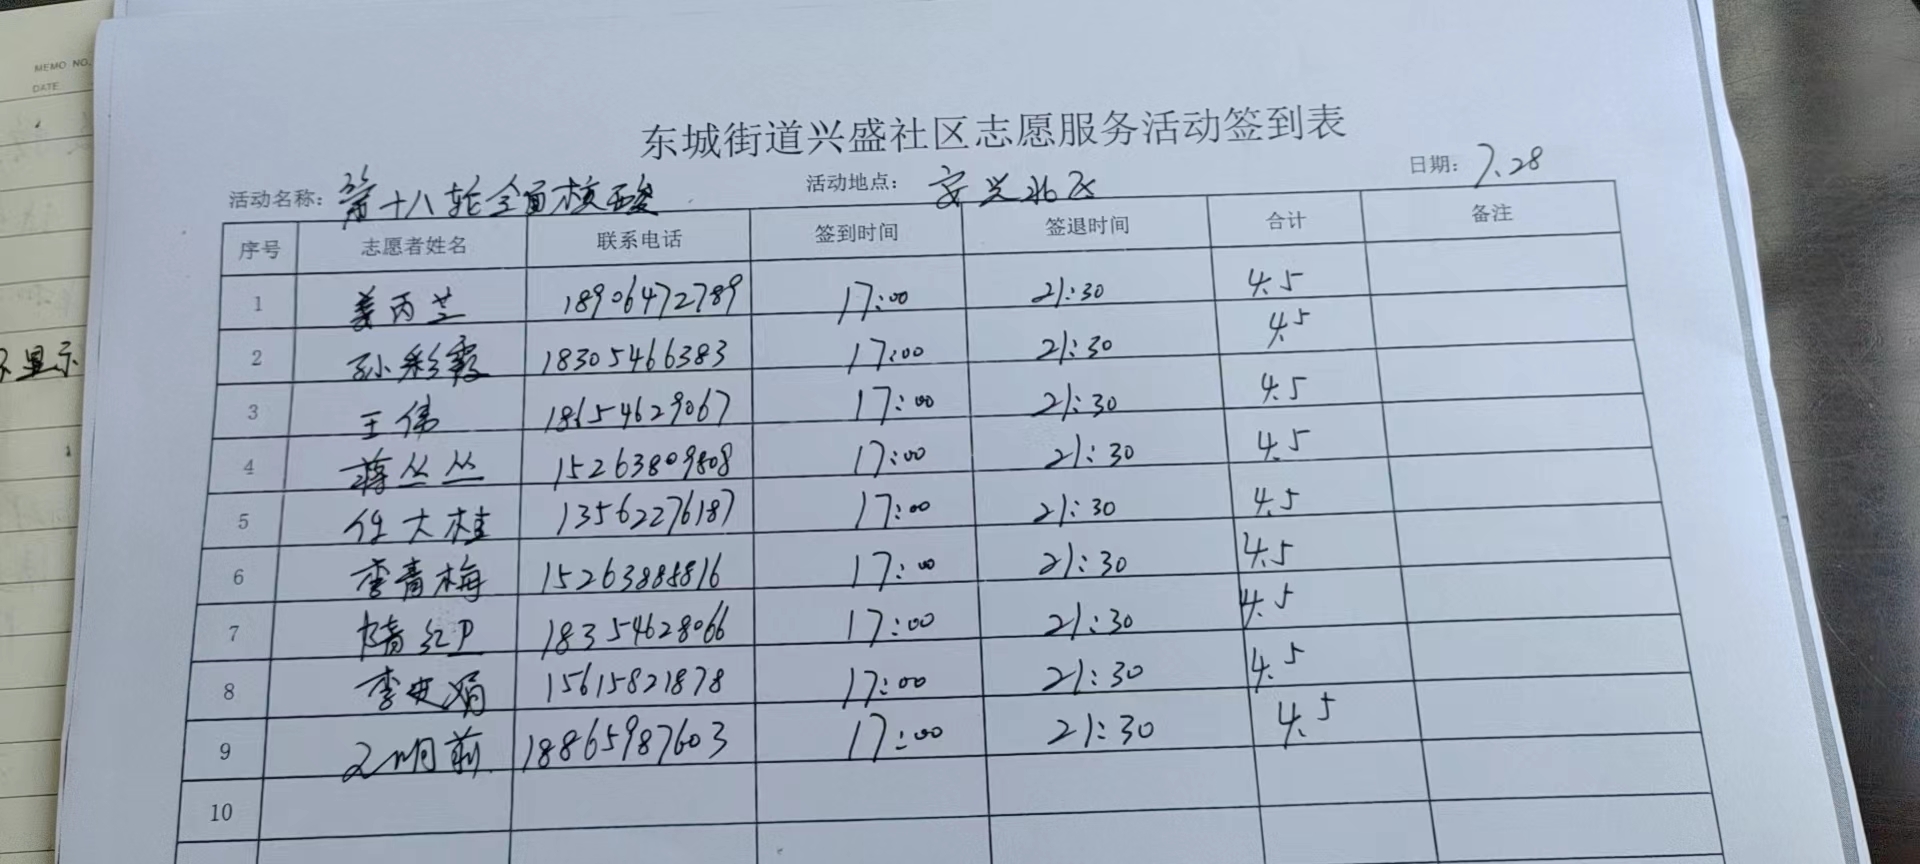 MEMO NO.
DATE
不显示
东城街道兴盛社区志愿服务活动签到表
活动名称：第十八轮全面核酸 活动地点：安兴北区 日期：7.28
序号 志愿者姓名 联系电话 签到时间 签退时间 合计 备注
1 姜丙芝 18906472789 17:00 21:30 4.5
2 孙彩霞 18305466383 17:00 21:30 4.5
3 王伟 18654629067 17:00 21:30 4.5
4 蒋丛丛 15263809808 17:00 21:30 4.5
5 任大桂 13562276187 17:00 21:30 4.5
6 李青梅 15263888816 17:00 21:30 4.5
7 隋红卫 18354628066 17:00 21:30 4.5
8 李史娟 15615821878 17:00 21:30 4.5
9 明前 18865987603 17:00 21:30 4.5
10